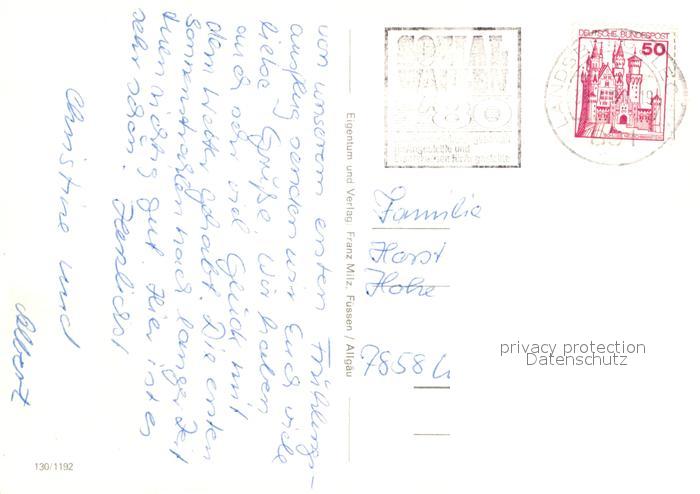 von unserem ersten Frühlings-
ausflug senden wir Euch viele
liebe Grüße. Wir haben
auch sehr viel Glück mit
dem Wetter gehabt. Die ersten
Sonnenstrahlen nach langer Zeit
tun richtig gut. Hier ist es
sehr schön.
Herzlichst
Christine und
Albert
130/1192
Eigentum und Verlag Franz Milz, Füssen / Allgäu
SOZIAL
WAHLEN
Angestellte und
DEUTSCHE BUNDESPOST
50
LANDSB
Familie
Horst
Hohe
7858
privacy protection
Datenschutz